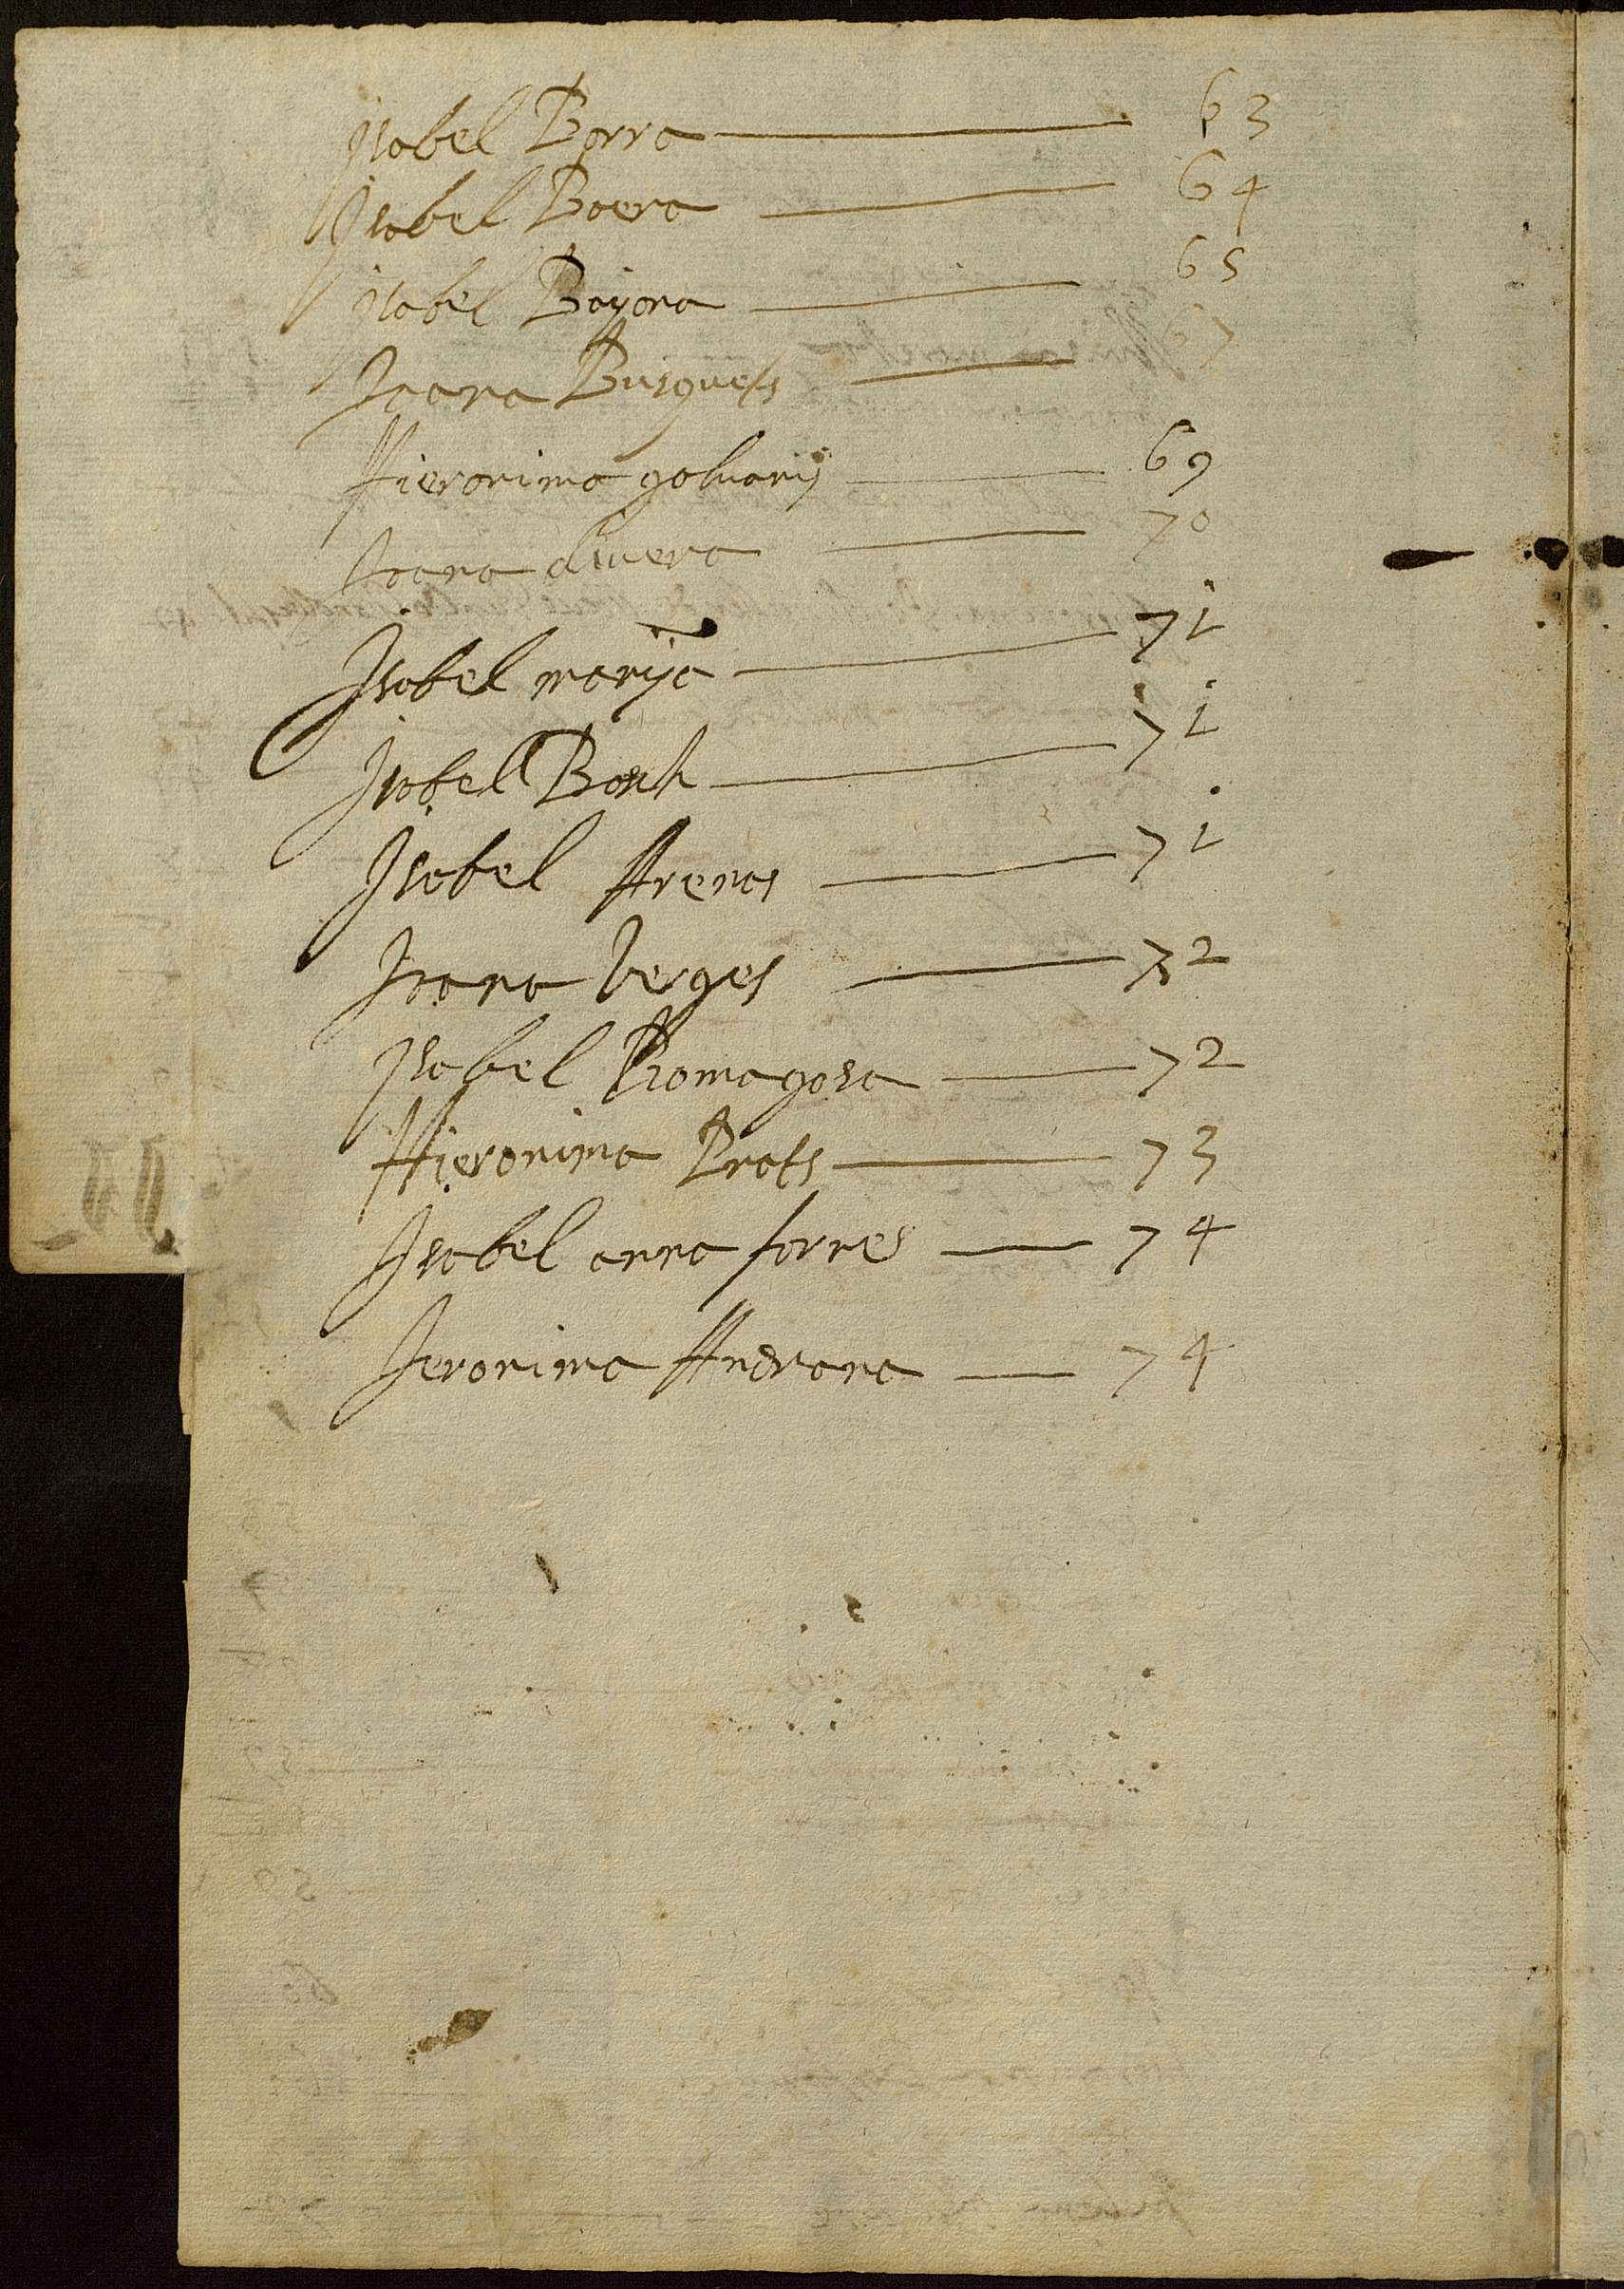 Isabel Borra 63
Isabel Boera 64
Isabel Bayona 65
Joana Busquets 67
Hieronima galvany 69
Joana olivera 70
Isabel mariya 71
Isabel Bosch 71
Isabel Arenas 71
Joana Verges 72
Isabel Romagosa 72
Hieronima Prats 73
Isabel anna forres 74
Jeronima Andrana 74